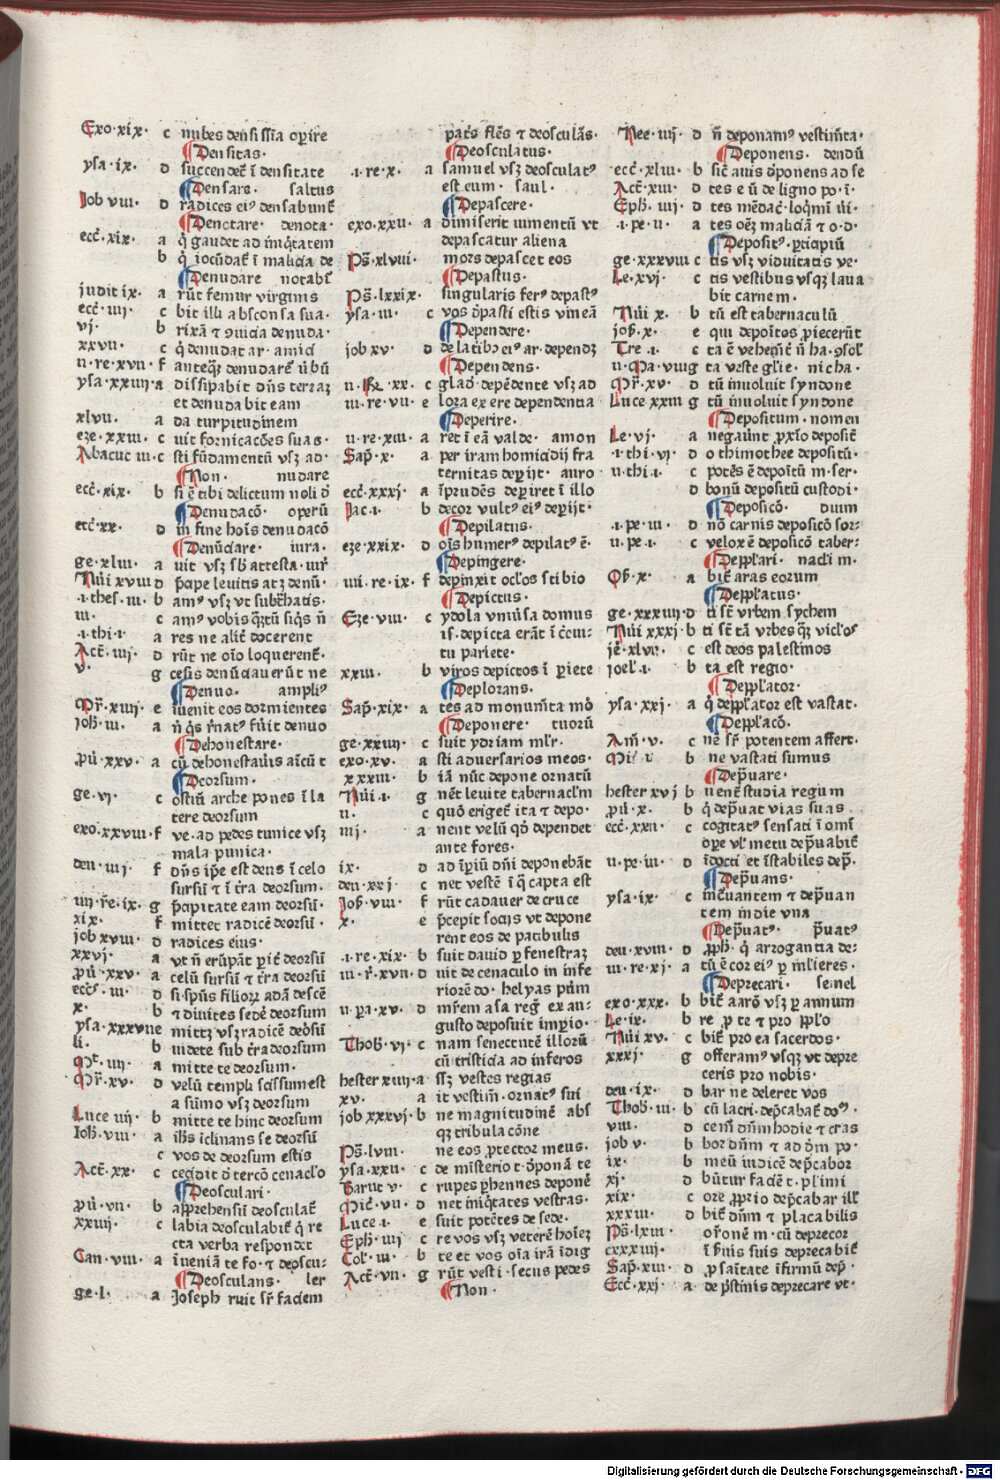 Exo·xix· c nubes densissīa opire
¶Densitas·
ysa·ix· d succendet̄ ī densitate
¶Densare· saltus
Job viii· d radices eiꝰ densabunt̄
¶Denotare· denota
ecc̄·xix· a q̄ gaudet ad iniq̄tatem
b q̄ iocūdat̄ ī malicia de
¶Denudare notabr̄
judit ix· a rūt femur virginis
ecc̄·iiij· c bit illi absconsa sua·
vj· b rixā ⁊ ꝯuicia denuda·
xxvii· c q̄ denudat ar· amici
ii·re·xvii· f anteqꝫ denudarēt̄ v̄bū
ysa·xxiiii a dissipabit dn̄s terraꝫ
et denudabit eam
xlvii· a da turpitudinem
eze·xxiii· c uit fornicacōes suas·
Abacuc iii· c sti fūdamentū vsꝫ ad·
¶Non· nudare
ecc̄·xix· b si ē tibi delictum noli d̄
¶Denudacō· operū
ecc̄·xx· d in fine hoīs denudacō
¶Denūciare· iura·
ge·xliii· a uit vsꝫ sb̄ attesta·iur̄
Nūi xviii d p̄cipe leuitis atꝫ denū·
·i·thes·iii· b amꝰ vobis
iii· c amꝰ vobis qm̄ siqs n̄
·i·thi·i· a res ne alit̄ docerent
Act̄·iiij· d rūt ne oīo loquerent̄·
v· g cessis denūciauerūt ne
¶Denuo· ampliꝰ
Mr̄·xiiij· e iuenit eos dormientes
ioh̄·iii· a n̄ qs r̄natꝰ fūit denuo
¶Dehonestare·
p̄u·xxv· a cū dehonestauis aīcū t
¶Deorsum·
ge·vi· c ostiū arche pones ī la
tere deorsum
exo·xxviii· f ve·ad pedes tunice vsꝫ
mala punica·
deu·iiij f dn̄s ip̄e est deus ī celo
sursū ⁊ ī t̄ra deorsum·
iiij r̄e·ix· g p̄cipitate eam deorsū·
xix· f mittet radicē deorsū·
job xviii· d radices eius·
xxvj· a vt n̄ erūpāt pit̄ deorsū
p̄u·xxv· a celū sursū ⁊ t̄ra deorsū
ecc̄s·iii· d si spūs filioꝝ adā descē
x· b ⁊ diuites sedē deorsum
ysa·xxxvii e mittꝫ vsꝫ radicē deōsū
li· b uidete sub t̄ra deorsum
Mt̄·iiij· a mitte te deorsum·
Mr̄·xv· d velū templi scissum est
a sūmo vsꝫ deorsum
Luce iiij· b mitte te hinc deorsum
Ioh̄·viii· a ih̄s īclinans se deorsū
c vos de deorsum estis
Act̄·xx· c cecidit d̄ tercō cenac̄lo
¶Deosculari·
p̄u·vii· b apprehensū deosculat̄
xxiiij· c labia deosculabit̄ q̄ re
cta verba respondet
Can·viii· a īueniā te fo·⁊ deoscu:
¶Deosculans· ler
ge·l· a Joseph ruit sr̄ faciem
pat̄s flēs ⁊ deosculās·
¶Deosculatus·
·i·re·x· a samuel vsꝫ deosculatꝰ
est eum· saul·
¶Depascere·
exo·xxii· a dimiserit iumentū vt
depascatur aliena
Ps̄·xlviii· mors depascet eos
¶Depastus·
Ps̄·lxxix· singularis ferꝰ depastꝰ
ysa·iii· c vos d̄pasti estis vineā
¶Dependere·
job xv· d de latibꝰ eiꝰ ar·dependꝫ
¶Dependens·
ii·Re·xx· c glad̄·depēdente vsꝫ ad
iii·re·vii· e lora ex ere dependentia
¶Deperire·
ii·re·xiii· a ret ī eā valde· amon
Sap̄·x· a per iram homicidij fra
ternitas depijt· auro
ecc̄·xxxj· a īprudēs depiret ī illo
Jac·i· b decor vultꝰ eiꝰ depijt·
¶Depilatus·
eze·xxix· d oīs humerꝰ depilatꝰ ē·
¶Depingere·
iiii·re·ix· f depinxit oc̄los stibio
¶Depictus·
Eze·viii· c ydola vniūsa domus
is·depicta erāt ī c̄cui:
tu pariete·
xxiii· b viros depictos ī piete
¶Deplorans·
Sap̄·xix· a tes ad monumīta mō
¶Deponere· tuorū
ge·xxiiij· c suit ydriam mlr̄·
exo·xv· a sti aduersarios meos·
xxxiii· b iā nūc depone ornatū
Nūi·i· g nēt leuite tabernaclm̄
ii· c quō eriget̄ ita ⁊ depo·
iiij· a nent velū qd̄ dependet
ante fores·
ix· d ad īpiū dn̄i deponebāt
deu·xxj· c net vestē ī q̄ capta est
Jos̄·viii· f rūt cadauer de cruce
x· e p̄cepit socijs vt depone
rent eos de patibulis
·i·re·xix· b suit dauid p fenestraꝫ
iii·r̄·xvii· d uit de cenaculo in infe
riorē do· helyas pūm
ii·pa·xv· d mr̄em asa reḡ· ex au·
gusto deposuit impio·
Thob̄·vj· c nam senectutē illorū
cū tristicia ad inferos
hester xiiij· a ssꝫ vestes regias
xv· a it vestim̄·ornatꝰ sui
job xxxvj· b ne magnitudinē abs
qꝫ tribulacōne
Ps̄·lviii· ne eos ꝓtector meus·
ysa·xxii· c de misterio t·d̄ponā te
Baruc v· c rupes p̄hennes deponē
Mic̄·vii· d net iniq̄tates vestras·
Luce·i· e suit potētes de sede·
Eph̄·iiij c re vos vsꝫ veterē hoīeꝫ
Col̄·iii· b te et vos oīa irā īdig
Act̄·vii· g rūt vesti·secus pedes
¶Non·
Nee·iiij· d n̄ deponamꝰ vestim̄ta·
¶Deponens· dendū
ecc̄·xliii· b sic̄ auis d̄ponens ad se
Act̄·xiii· d tes e ū de ligno po·ī·
Eph̄·iiij· d tes mēdac̄·loq̄mī v̄i·
·i·pe·ii· a tes oēꝫ maliciā ⁊ o·d·
¶Depositꝰ·pticipiū
ge·xxxviii c tis vsꝫ viduitatis ve·
Le·xvj· c tis vestibus vsqꝫ laua
bit carnem·
Nūi x· b tū est tabernaculū
jos̄·x· e qui depoītos ꝓiecerūt
Tre·i· c ta ē vehemt̄ n̄ ha·ꝯsol̄
ii·Ma·viii g ta veste gl̄ie· nicha·
Mr̄·xv· d tū inuoluit syndone
Luce xxiii g tū inuoluit syndone
¶Depositum· nomen
Le·vj· a negaūnt ꝓxīo deposit̄
·i·thi·vj· d o thimothee depositū·
ii·thi·i· c potēs ē depoītū m·ser·
d bonū depositū custodi·
¶Deposicō· duum
·i·pe·iii· d nō carnis deposicō sor:
ii·pe·i· c velox ē deposicō taber:
¶Depp̄lari· nacli m·
Os̄·x· a bit̄ aras eoꝝum
¶Depp̄latus·
ge·xxxiiii· d ti sēt vrbem sychem
Nūi xxxj· b ti sēt tā vrbes qꝫ vicl̄os
je·xlvii· c est deos palestinos
joel̄·i· b ta est regio·
¶Depp̄lator·
ysa·xxj· a q̄ depp̄lator est vastat·
¶Depp̄lacō·
Am̄·v· c ne sr̄ potentem affert·
Mic̄ ii b ne vastati sumus
¶Dep̄uare·
hester xvj b uent̄ studia regum
p̄u·x· b q̄ dep̄uat vias suas
ecc̄·xxii· c cogitatꝰ sensati ī omī
ope vl̄ metu dep̄uabit̄
ii·pe·iii· d īdocti et īstabiles dep̄·
¶Dep̄uans·
ysa·ix· c incuruantem ⁊ dep̄uan
tem in die vna
¶Dep̄uatꝰ· p̄uatꝰ
deu·xviii· d ꝓph̄·q̄ arrogantia de:
iii·re·xj· a tū ē cor eiꝰ p ml̄ieres·
¶Deprecari· semel
exo·xxx· b bit̄ aarō vsꝫ p annum
Le·ix· b re ꝓ te ⁊ pro pp̄lo
Nūi xv· c bit̄ pro ea sacerdos·
xxxj· g offeramꝰ vsqꝫ vt depre
ceris pro nobis·
deu·ix· d bar ne deleret vos
Thob̄·iii· b cū lacri·dep̄cabat̄ doꝰ·
viii· d cem̄ dūm hodie ⁊ cras
job v· b bor dūm ⁊ ad dm̄ po·
ix· b meū iudicē dep̄cabor
xj· d būtur faciēt t·pl̄imi
xix· c ore ꝓprio dep̄cabar ill̄
xxxiii· d bit̄ dūm ⁊ placabilis
Ps̄·lxiii· or̄onē m·cū deprecor
cxxxiiij· ī suis suis deprecabit̄
Sap̄·xiii· d ꝓ sāitate īfirmū dep̄·
Ecc̄·xxj· a de p̄stinis deprecare vt·
Digitalisierung gefördert durch die Deutsche Forschungsgemeinschaft - DFG